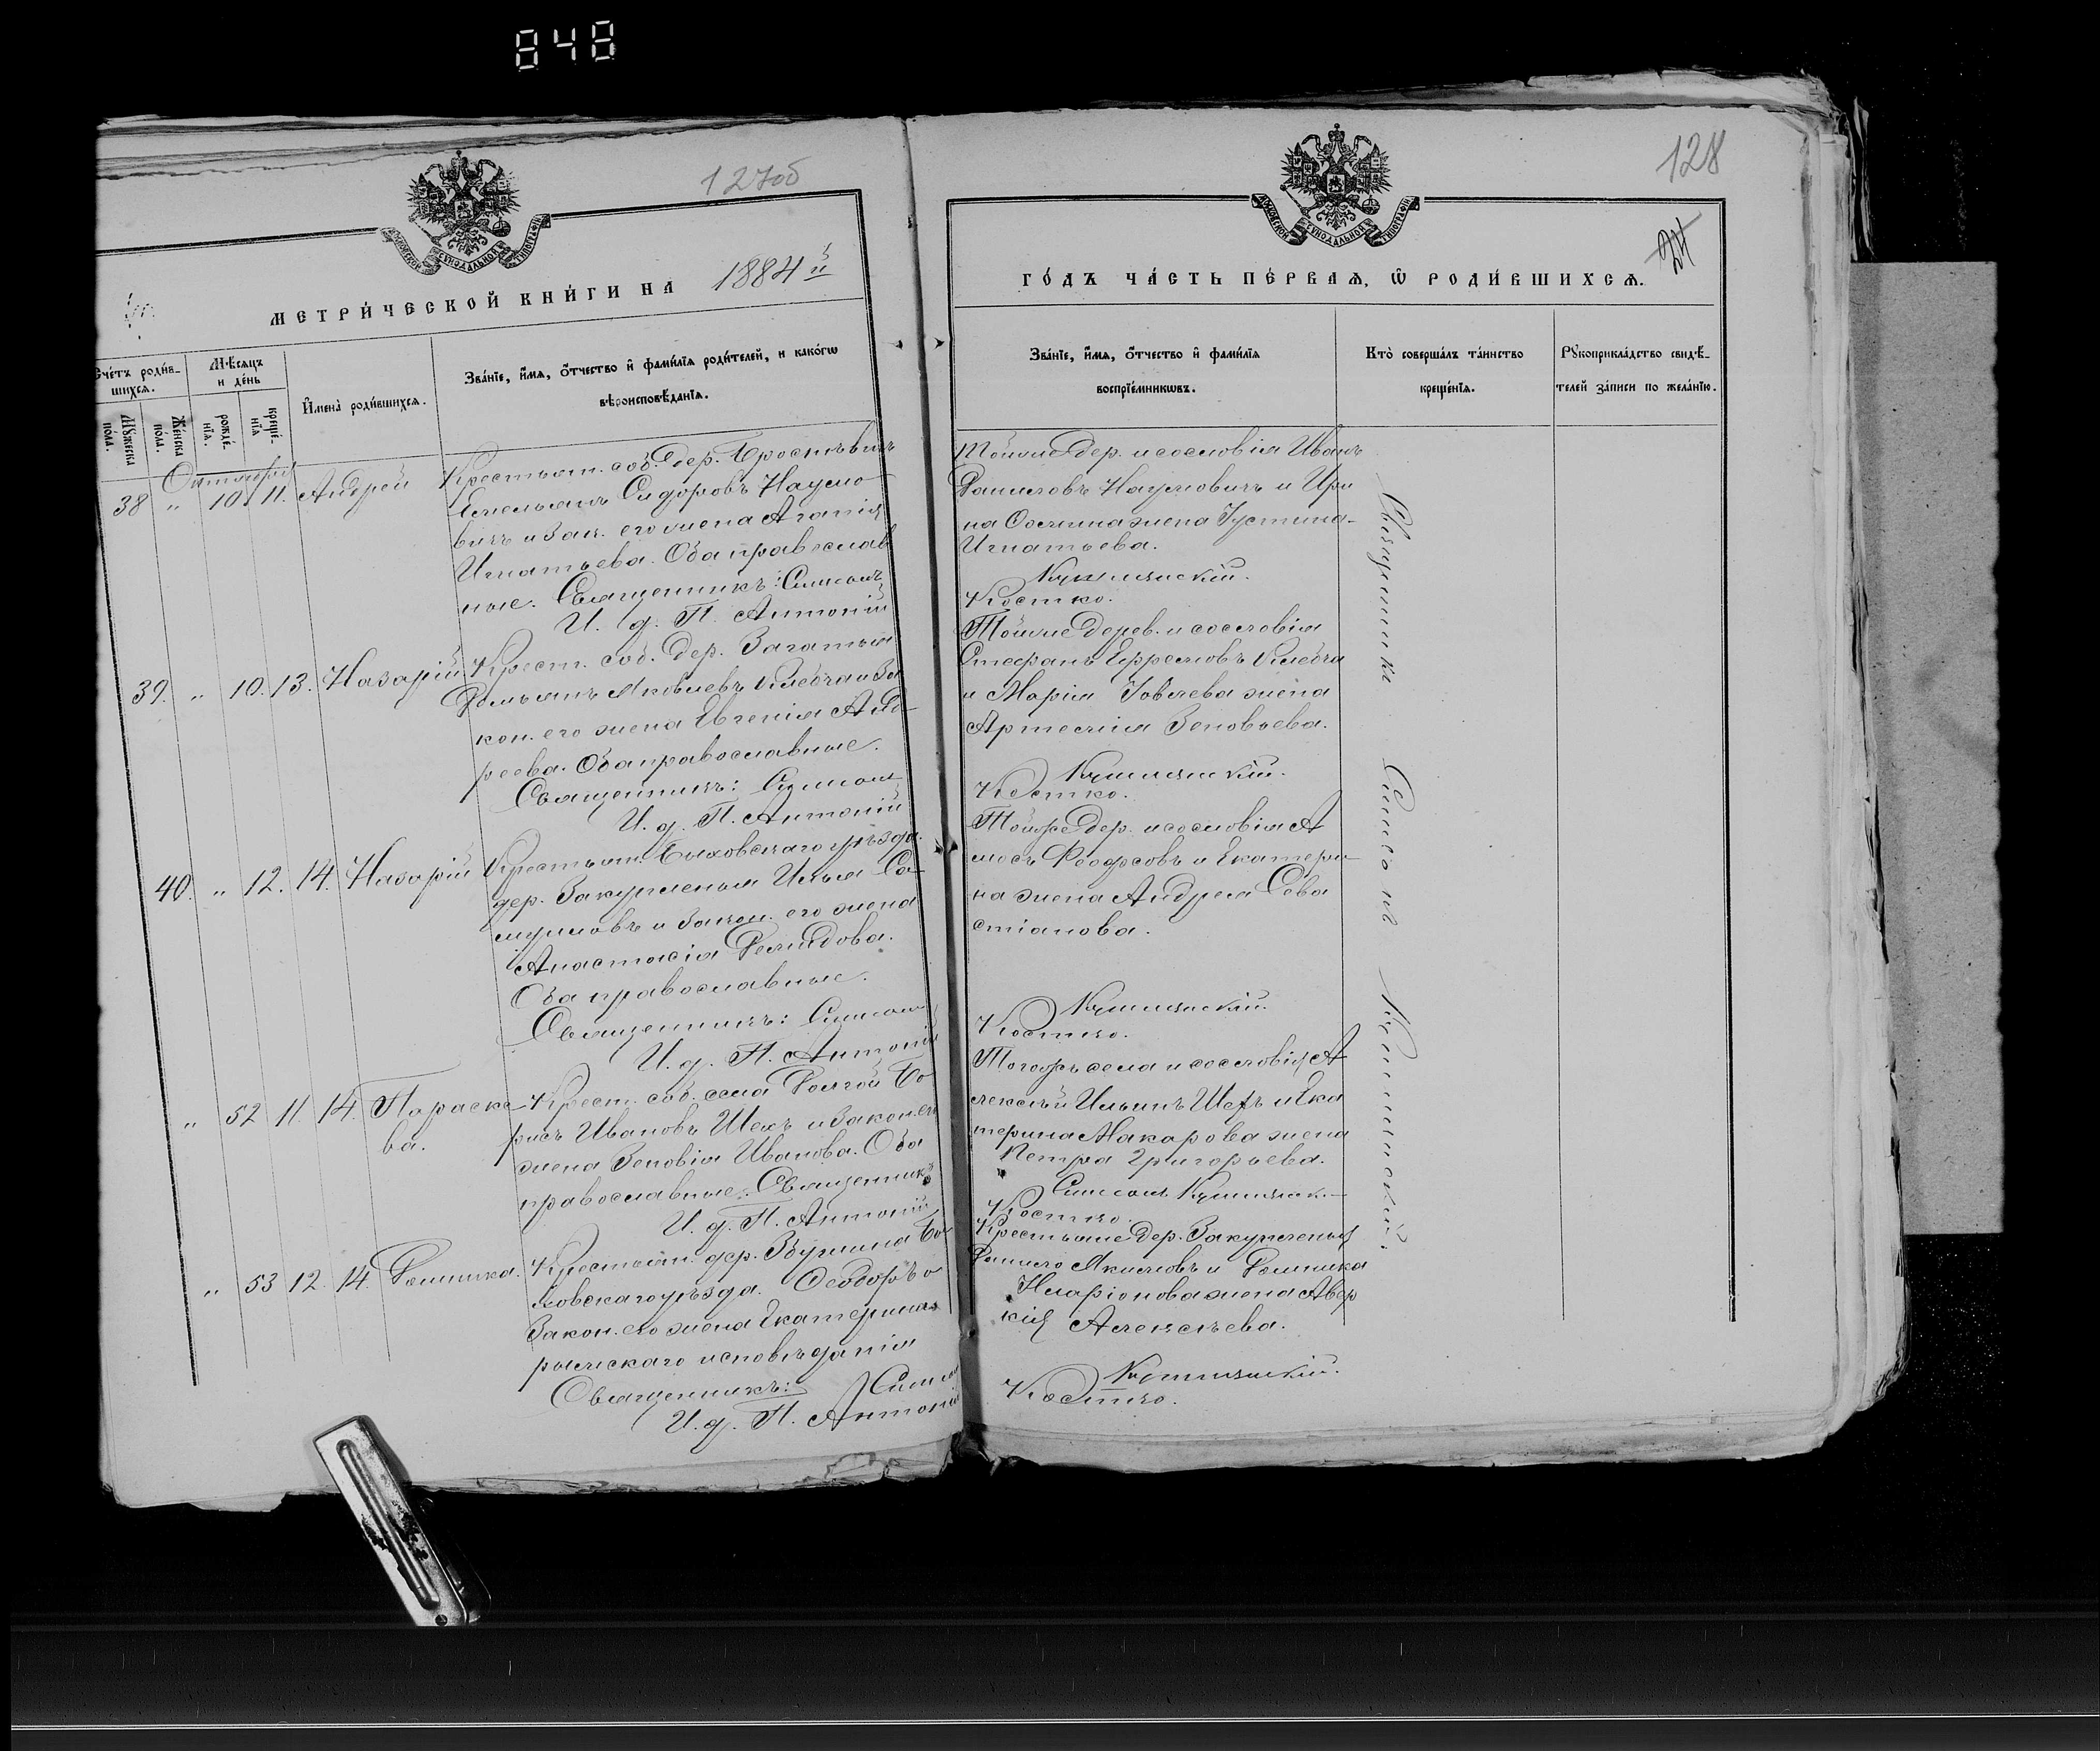 848
127об
МЕТРИ́ЧЕСКОЙ КНИ́ГИ НА 1884й
Сче́тъ роди́в-
шихся.
Му́жеска
по́ла.
Же́нска
по́ла.
Мѣ́сяцъ
и де́нь
рожде́-
нїя.
креще́-
нїя
И҆мена̀ роди́вшихся.
Зва́нїе, и҆́мя, ѻ҆́тчество и҆ фами́лїя роди́телей, и како́гѡ
вѣроисповѣ́данїя.
Октября
38 „ 10. 11. Андрей
Крестьян. соб. дер.
Емельянъ Сидоровъ Наумо-
вичъ и Зак. его жена Агапія
Игнатьева. Оба православ
ные. Священникъ: Симеонъ
И. д. П. Антоній
39. „ 10. 13. Назарій
Крест. соб. дер. Загатья
Демьянъ Яковлевъ и За
кон. его жена Евгенія Анд-
реева. Оба православные.
Священникъ: Симеонъ
И. д. П. Антоній
40. „ 12. 14. Назарій
Крестьян. Быховскаго уѣзда.
дер. Закупленья Илья Са-
муиловъ и Закон. его жена
Анастасія Демидова.
Оба православные.
Священникъ: Симеонъ
И. д. П. Антоній
„ 52 11. 14. Параске-
ва.
Крест. соб. села Долгой Бо
рисъ Ивановъ Шехъ и Закон. его
жена Зеновія Иванова. Оба
православные. Священникъ
И. д. П. Антоній
„ 53 12. 14. Домника.
Крестьян. дер. Збышина Бы
ховскаго уѣзда. Ѳеодоръ и
Закон. его жена Екатерина
римскаго исповѣданія
Священникъ: Симеон
И. д. П. Антоній
128
24
МОСКОВСКОЙ СУНОДАЛЬНОЙ ТИПОГРАФІИ
ГО́ДЪ ЧА́СТЬ ПЕ́РВАЯ, Ѡ҆ РОДИ́ВШИХСЯ.
Зва́нїе, и҆́мя, ѻ҆́тчество и҆ фами́лїя
воспрїе́мникѡвъ.
Кто̀ соверша́лъ та́инство
креще́нїя.
Рꙋкоприкла́дство свидѣ́-
телей за́писи по жела́нїю.
Тойже дер. и сословія Иванъ
Даниловъ Наумовичъ и Ири
на жена Густина-
Игнатьева.
Кушинскій.
Костко.
Тойже дерев. и сословія
Стефанъ Ефремовъ
и Марія Іовлева жена
Артемія Зеновьева.
Кушинскій.
Костко.
Тойже дер. и сословія А
мосъ и Екатери-
на жена Андрея Сева
стіанова.
Кушинскій.
Костко.
Тогожъ села и сословія А
лексѣй Ильинъ Шехъ и Ека
терина Макарова жена
Петра Григорьева.
Симеонъ Кушинск.—
Костко.
Крестьяне дер. Закупленья
Данило Якимовъ и Домника
Иларіонова жена Авер
кія Алексѣева.
Кушинскій.
Костко.
Священникъ Симеонъ Кушинскій.